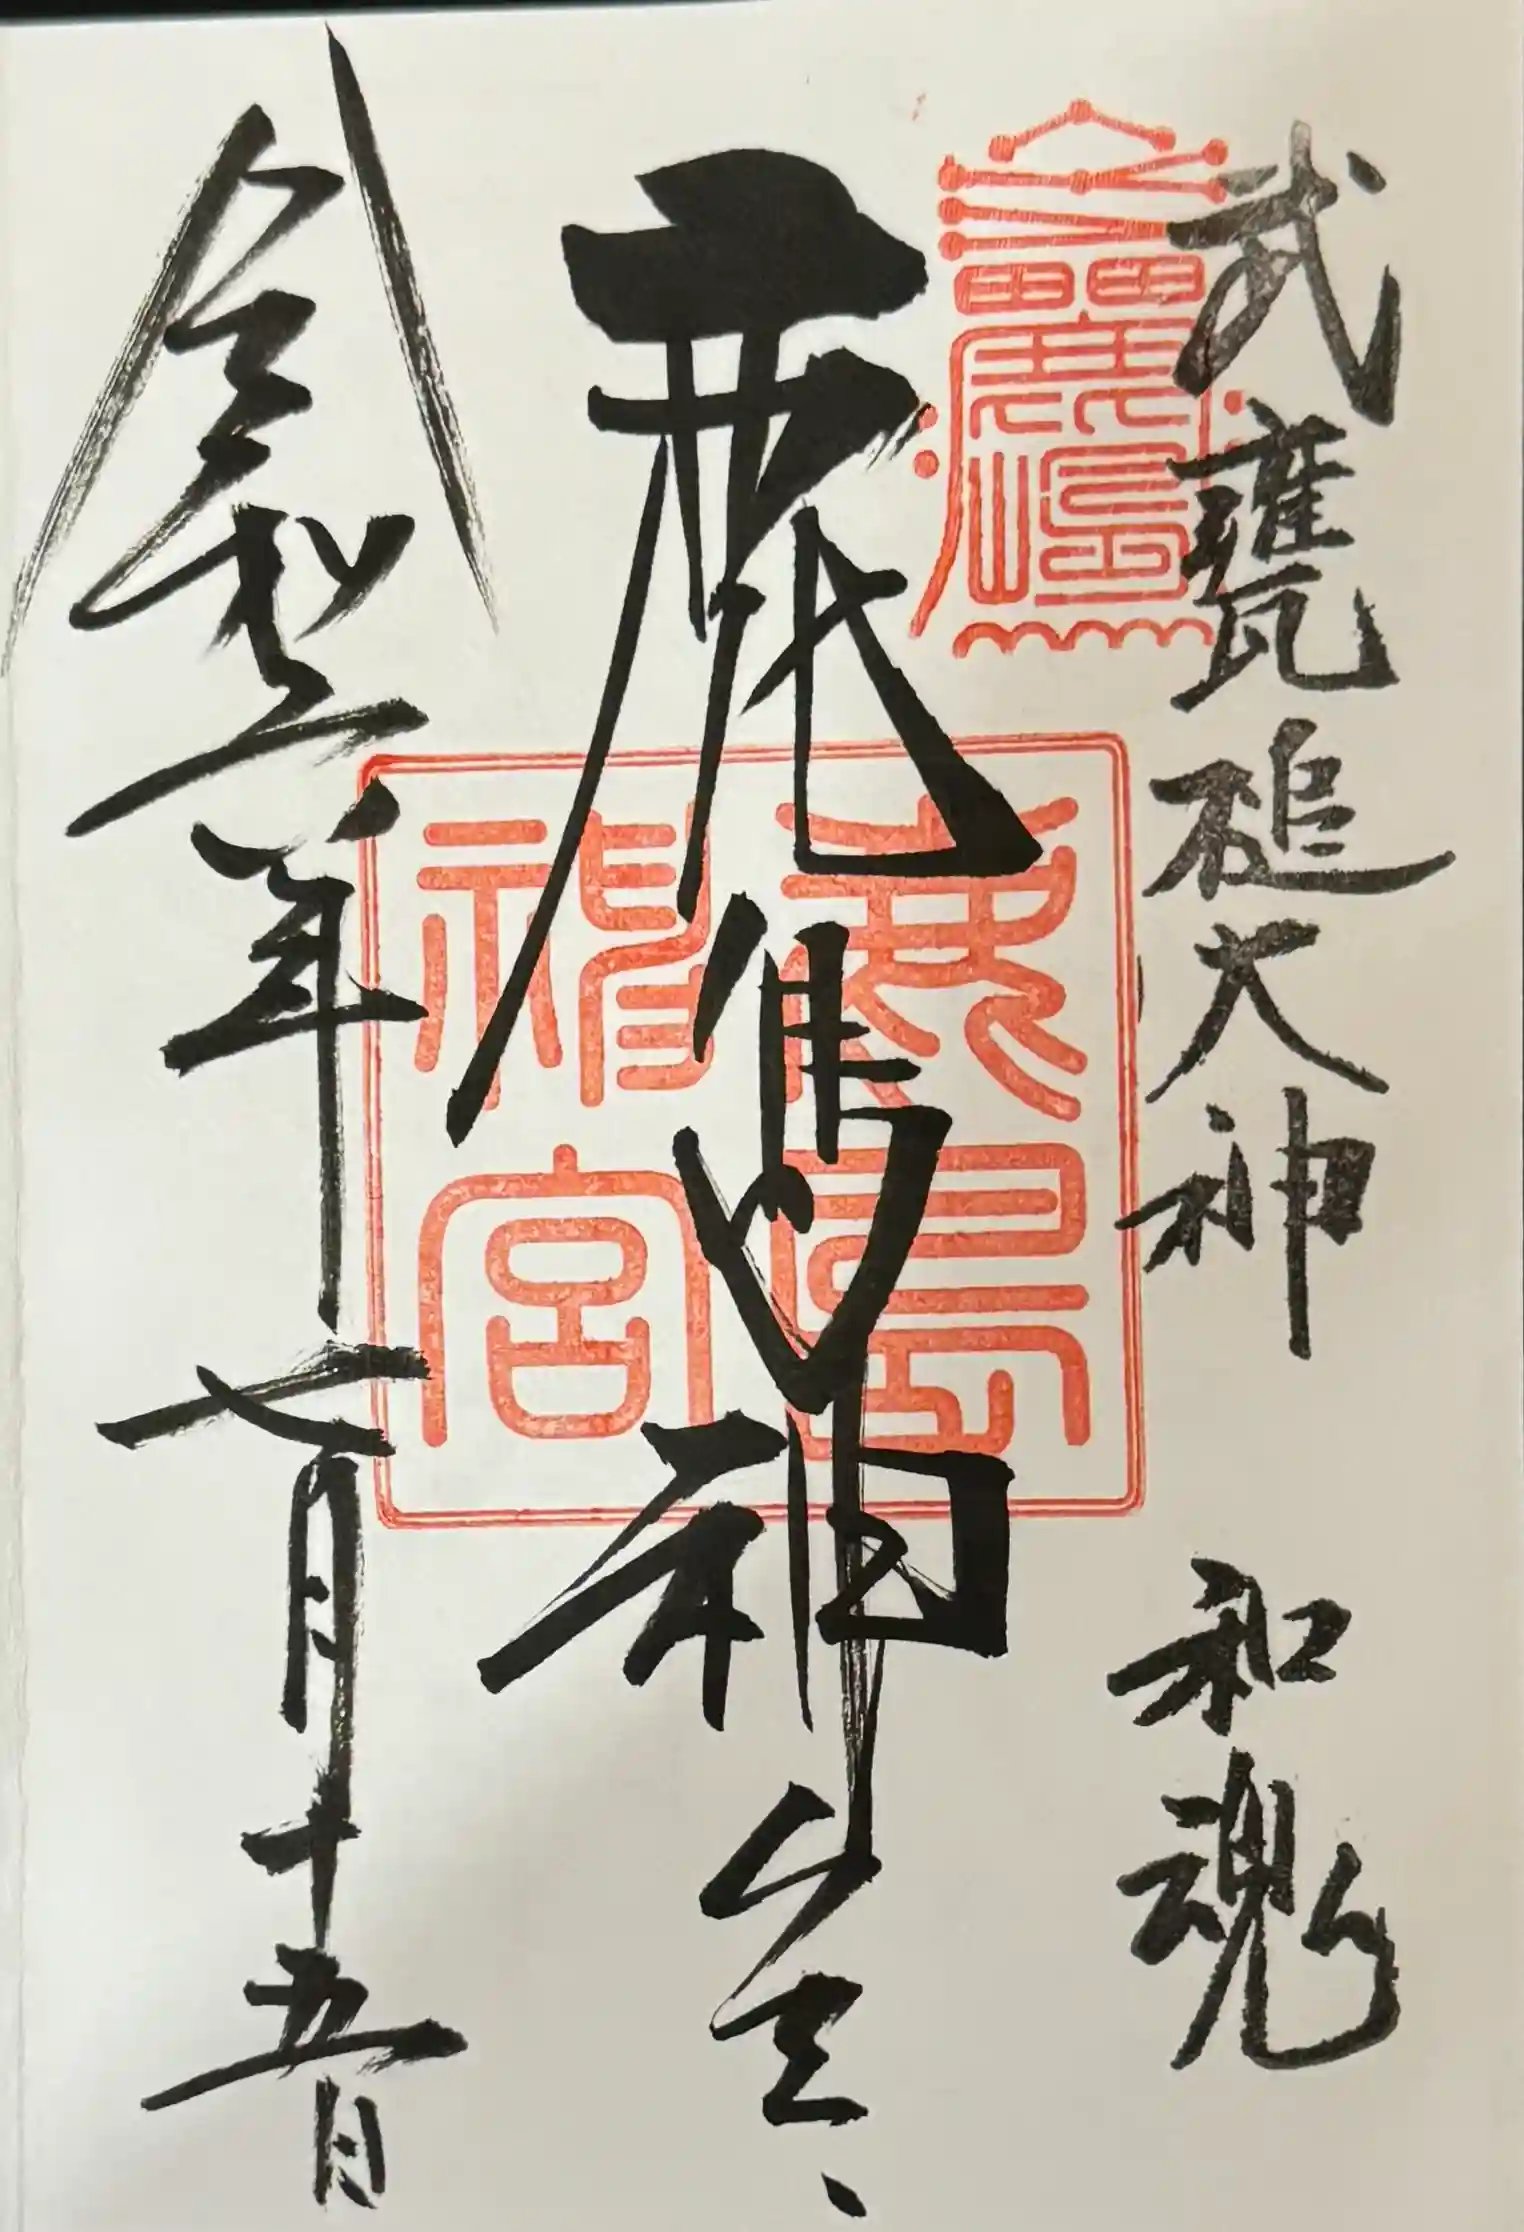 武甕槌大神　和魂
鹿島神宮
鹿島神宮
令和三年七月十五日